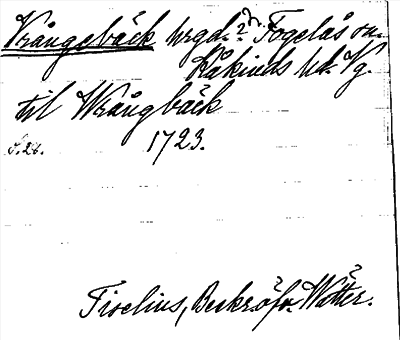 Vrångebäck hrgd.? N. Fogelås sn.
Kåkinds hd. Vg.
til Wrångbäck
S. 26. 1723.
Tiselius, Beskr. öfv. Wätter.